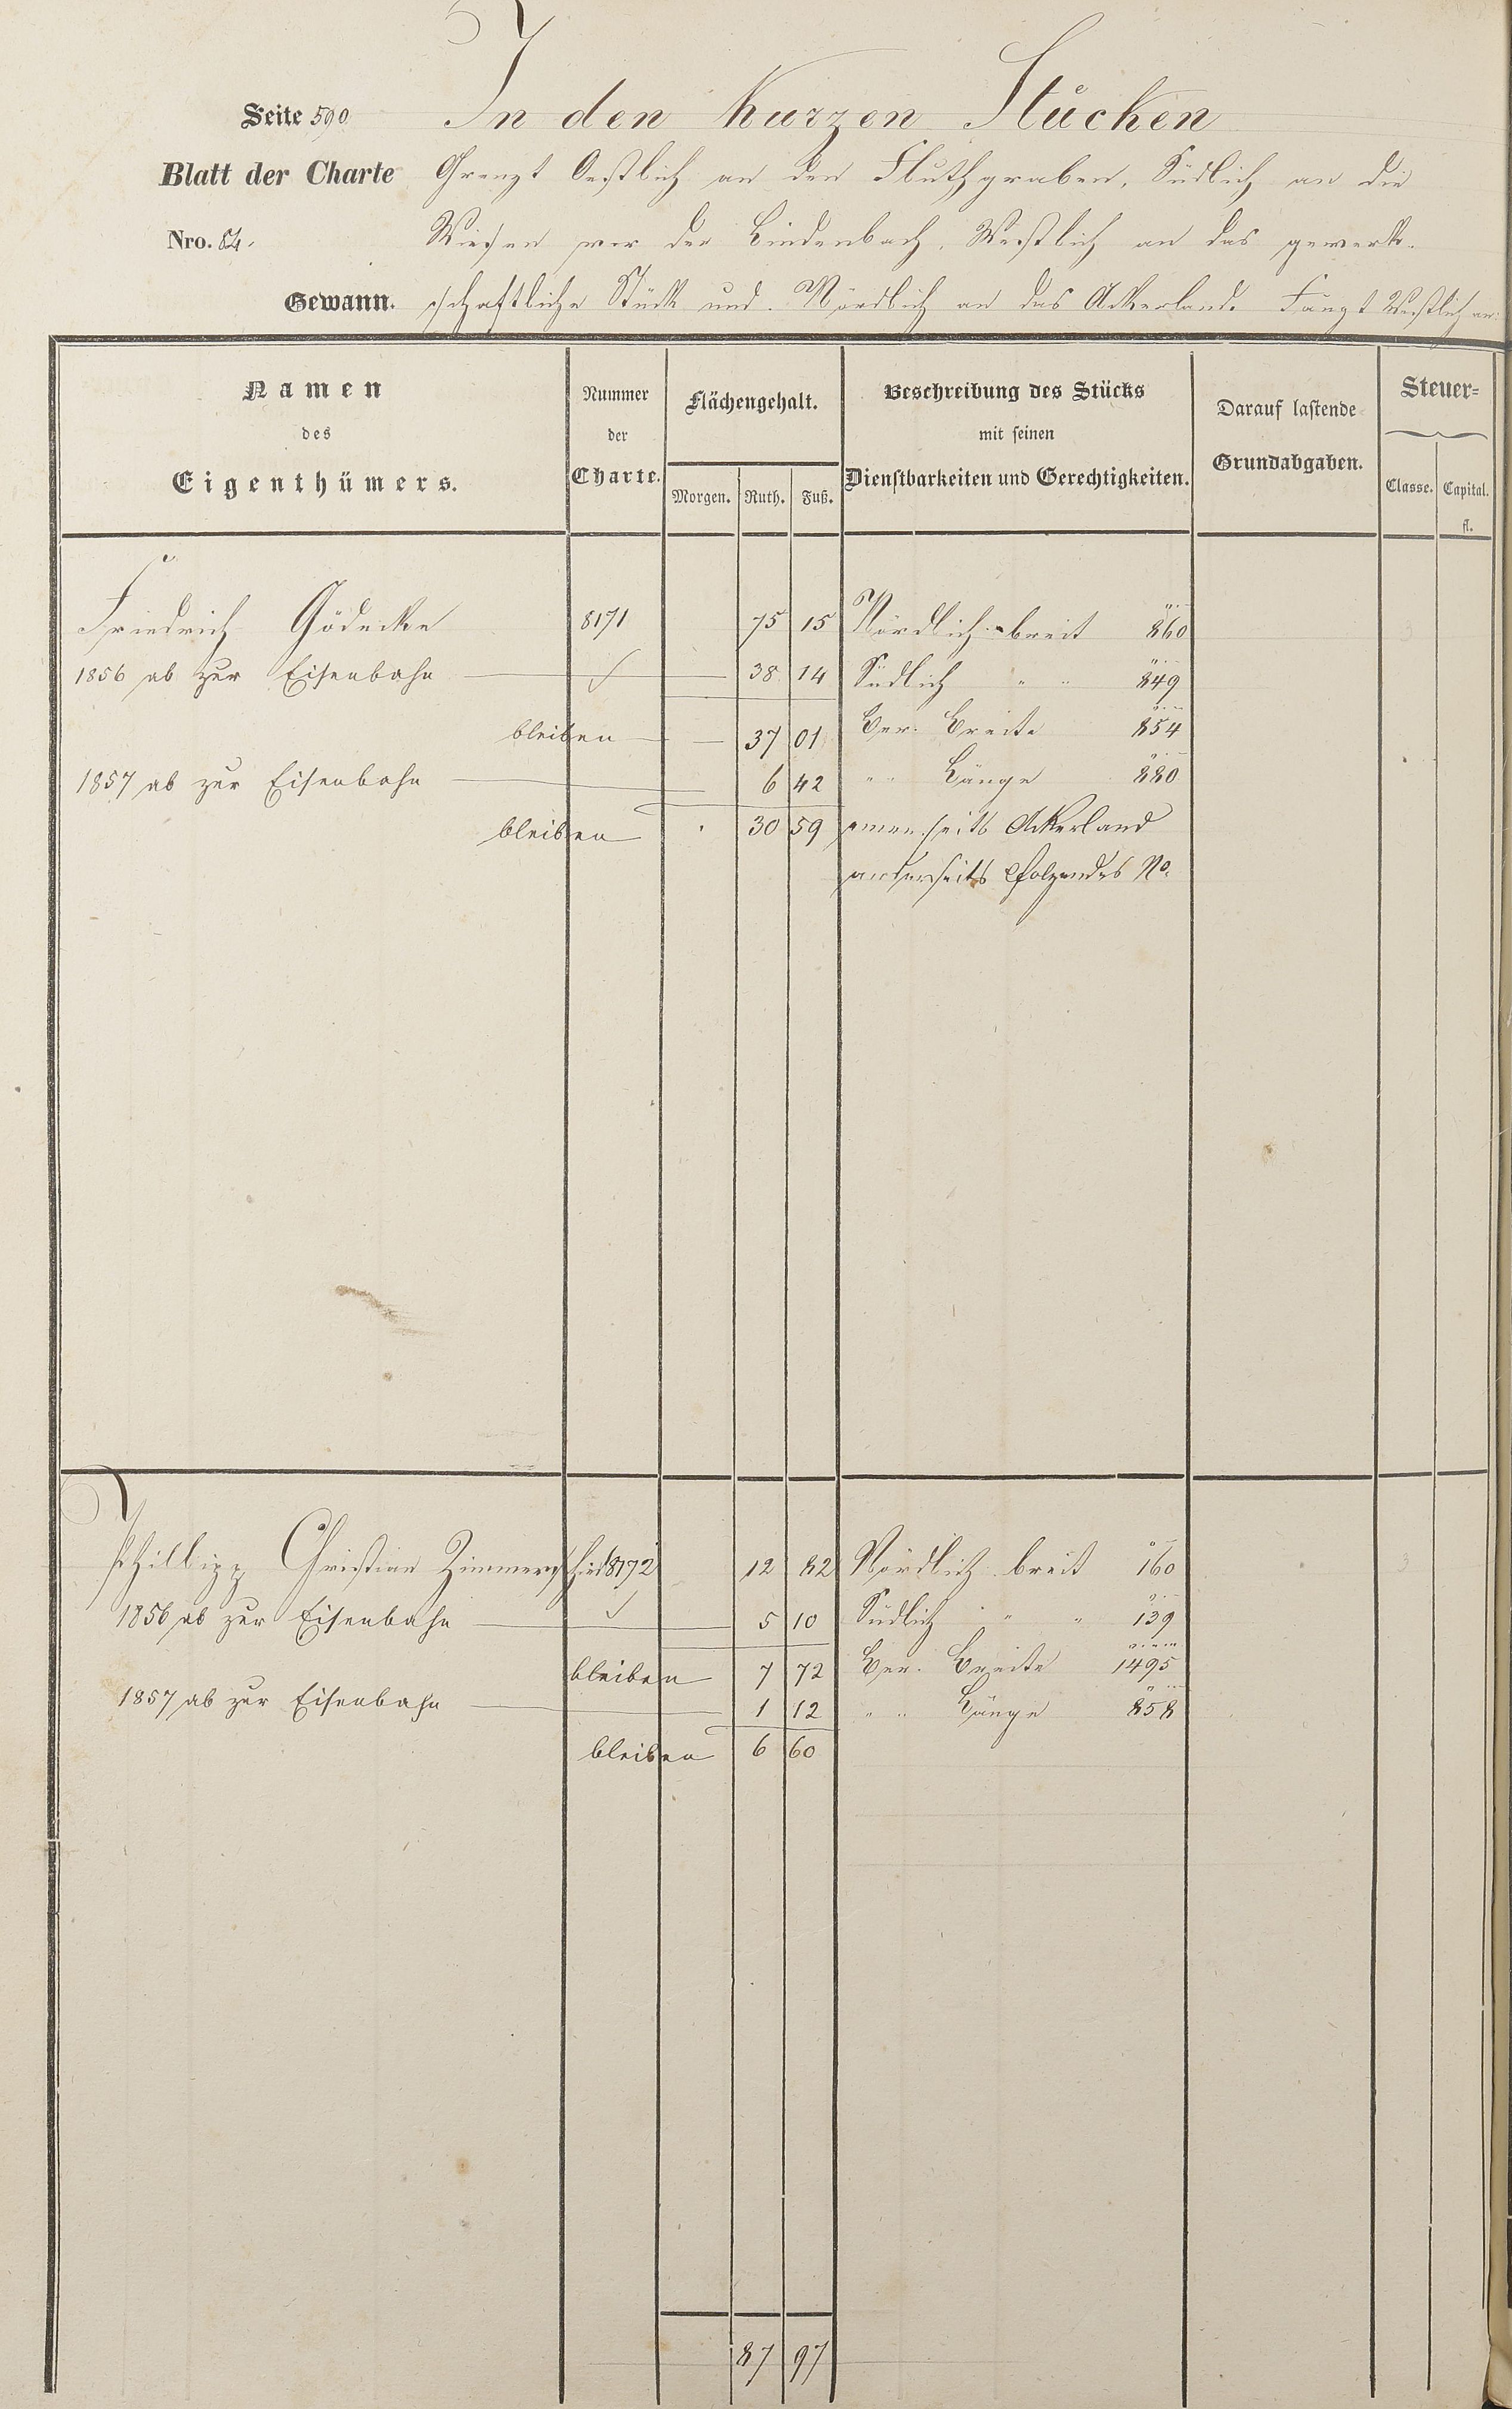 In den Kurzen Stücken
Seite 590
Blatt der Charte Grenzt Oestlich an den Fluthgraben, Südlich an die
Nro. 84. Wiesen vor der Lindenbach, Westlich an das gewerk-
Gewann. schaftliche Stück und Nördlich an das Ackerland. Fängt Westlich an:
Namen
des
Eigenthümers.
Nummer
der
Charte.
Flächengehalt.
Morgen. Ruth. Fuß.
Beschreibung des Stücks
mit seinen
Dienstbarkeiten und Gerechtigkeiten.
Darauf lastende
Grundabgaben.
Steuer=
Classe. Capital.
fl.
Friedrich Gödecke 8171 75 15 Nördlich breit 860
1856 ab zur Eisenbahn — ✓ — 38 14 Südlich " " 849
bleiben — — 37 01 Ber. Breite 854
1857 ab zur Eisenbahn — 6 42 " " Länge 880
bleiben 30 59 einerseits Ackerland
anderseits folgendes No.
Philipp Christian Zimmerschied 8172 12 82 Nördlich breit 160
1856 ab zur Eisenbahn — ✓ 5 10 Südlich " " 139
bleiben 7 72 Ber. Breite 1495
1857 ab zur Eisenbahn — 1 12 " " Länge 858
bleiben 6 60
87 97